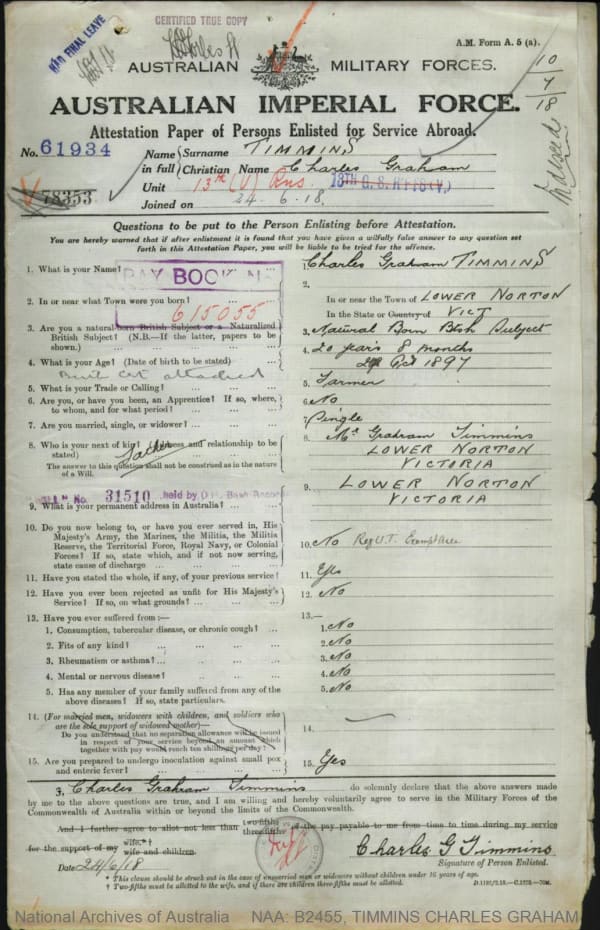 HAD FINAL LEAVE
CERTIFIED TRUE COPY
A.M. Form A. 5 (a).
AUSTRALIAN MILITARY FORCES.
10/7/18
AUSTRALIAN IMPERIAL FORCE.
Attestation Paper of Persons Enlisted for Service Abroad.
No. 61934
78353
Name in full { Surname TIMMINS
Christian Name Charles Graham
Unit 13th (V) Rns. 18TH G. S. RFTS (V.)
Joined on 24.6.18.
Indexed
Questions to be put to the Person Enlisting before Attestation.
You are hereby warned that if after enlistment it is found that you have given a wilfully false answer to any question set
forth in this Attestation Paper, you will be liable to be tried for the offence.
PAY BOOK No
615055
1. What is your Name? ... 1. Charles Graham TIMMINS
2. In or near what Town were you born? ... 2. In or near the Town of LOWER NORTON
In the State or Country of VICT
3. Are you a natural-born British Subject or a Naturalized
British Subject? (N.B.—If the latter, papers to be
shown.) ... 3. Natural Born Btsh Subject
4. What is your Age? (Date of birth to be stated) ... 4. 20 years 8 months
Oct 1897
Birth Cert attached
5. What is your Trade or Calling? ... 5. Farmer
6. Are you, or have you been, an Apprentice? If so, where,
to whom, and for what period? ... 6. No
7. Are you married, single, or widower? ... 7. Single
8. Who is your next of kin? (Address and relationship to be
stated) ... 8. Mr Graham Timmins
Father
LOWER NORTON
VICTORIA
The answer to this question shall not be construed as in the nature
of a Will.
No. 31510 held by Base Records
9. What is your permanent address in Australia? ... 9. LOWER NORTON
VICTORIA
10. Do you now belong to, or have you ever served in, His
Majesty's Army, the Marines, the Militia, the Militia
Reserve, the Territorial Force, Royal Navy, or Colonial
Forces? If so, state which, and if not now serving,
state cause of discharge ... 10. No Reg U.T. Exempt Area
11. Have you stated the whole, if any, of your previous service? 11. Yes
12. Have you ever been rejected as unfit for His Majesty's
Service? If so, on what grounds? ... 12. No
13. Have you ever suffered from:— 13.—
1. Consumption, tubercular disease, or chronic cough? ... 1. No
2. Fits of any kind? ... 2. No
3. Rheumatism or asthma? ... 3. No
4. Mental or nervous disease? ... 4. No
5. Has any member of your family suffered from any of the
above diseases? If so, state particulars. 5. No
14. (For married men, widowers with children, and soldiers who
are the sole support of widowed mother)—
Do you understand that no separation allowance will be issued
in respect of your service beyond an amount which
together with pay would reach ten shillings per day? 14.
15. Are you prepared to undergo inoculation against small pox
and enteric fever? ... 15. Yes
I, Charles Graham Timmins do solemnly declare that the above answers made
by me to the above questions are true, and I am willing and hereby voluntarily agree to serve in the Military Forces of the
Commonwealth of Australia within or beyond the limits of the Commonwealth.
And I further agree to allot not less than two-fifths three-fifths of the pay payable to me from time to time during my service
for the support of my wife.*† wife and children.
Date 24/6/18
Charles G Timmins
Signature of Person Enlisted.
* This clause should be struck out in the case of unmarried men or widowers without children under 16 years of age.
† Two-fifths must be allotted to the wife, and if there are children three-fifths must be allotted.
National Archives of Australia NAA: B2455, TIMMINS CHARLES GRAHAM